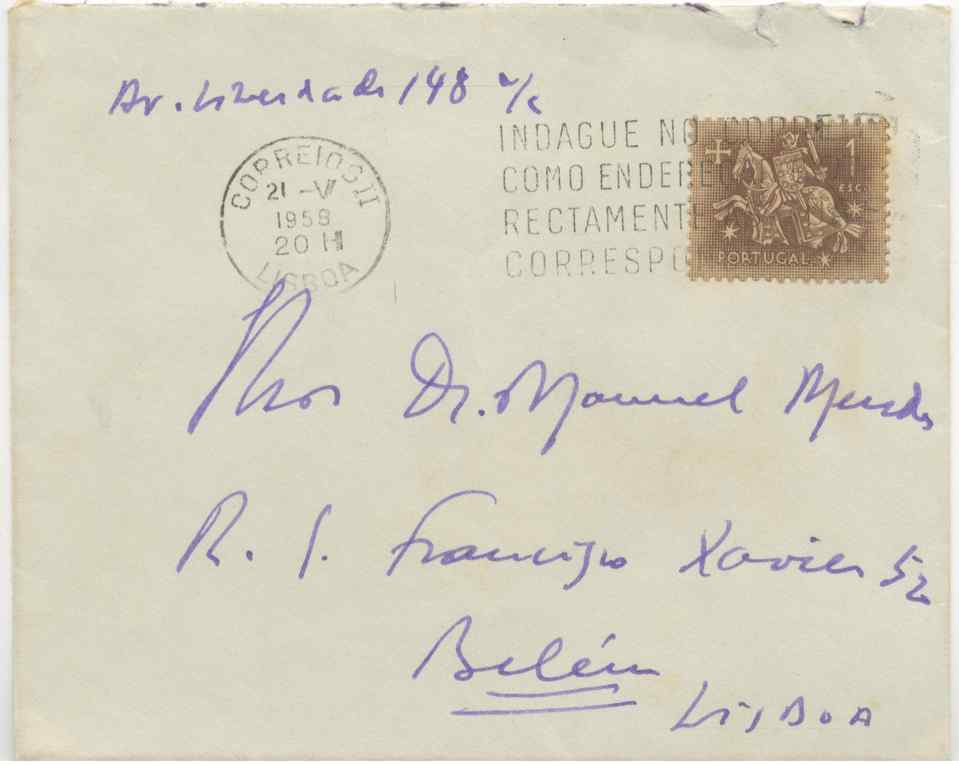 Av. Liberdade 148
CORREIOS II
21 -V
1958
20 H
LISBOA
INDAGUE NO CORREIO
COMO ENDERE
RECTAMENT
CORRESPO
1
ESC.
PORTUGAL
Dr. Manuel Mendes
R. S. Francisco Xavier 52
Belém
LISBOA